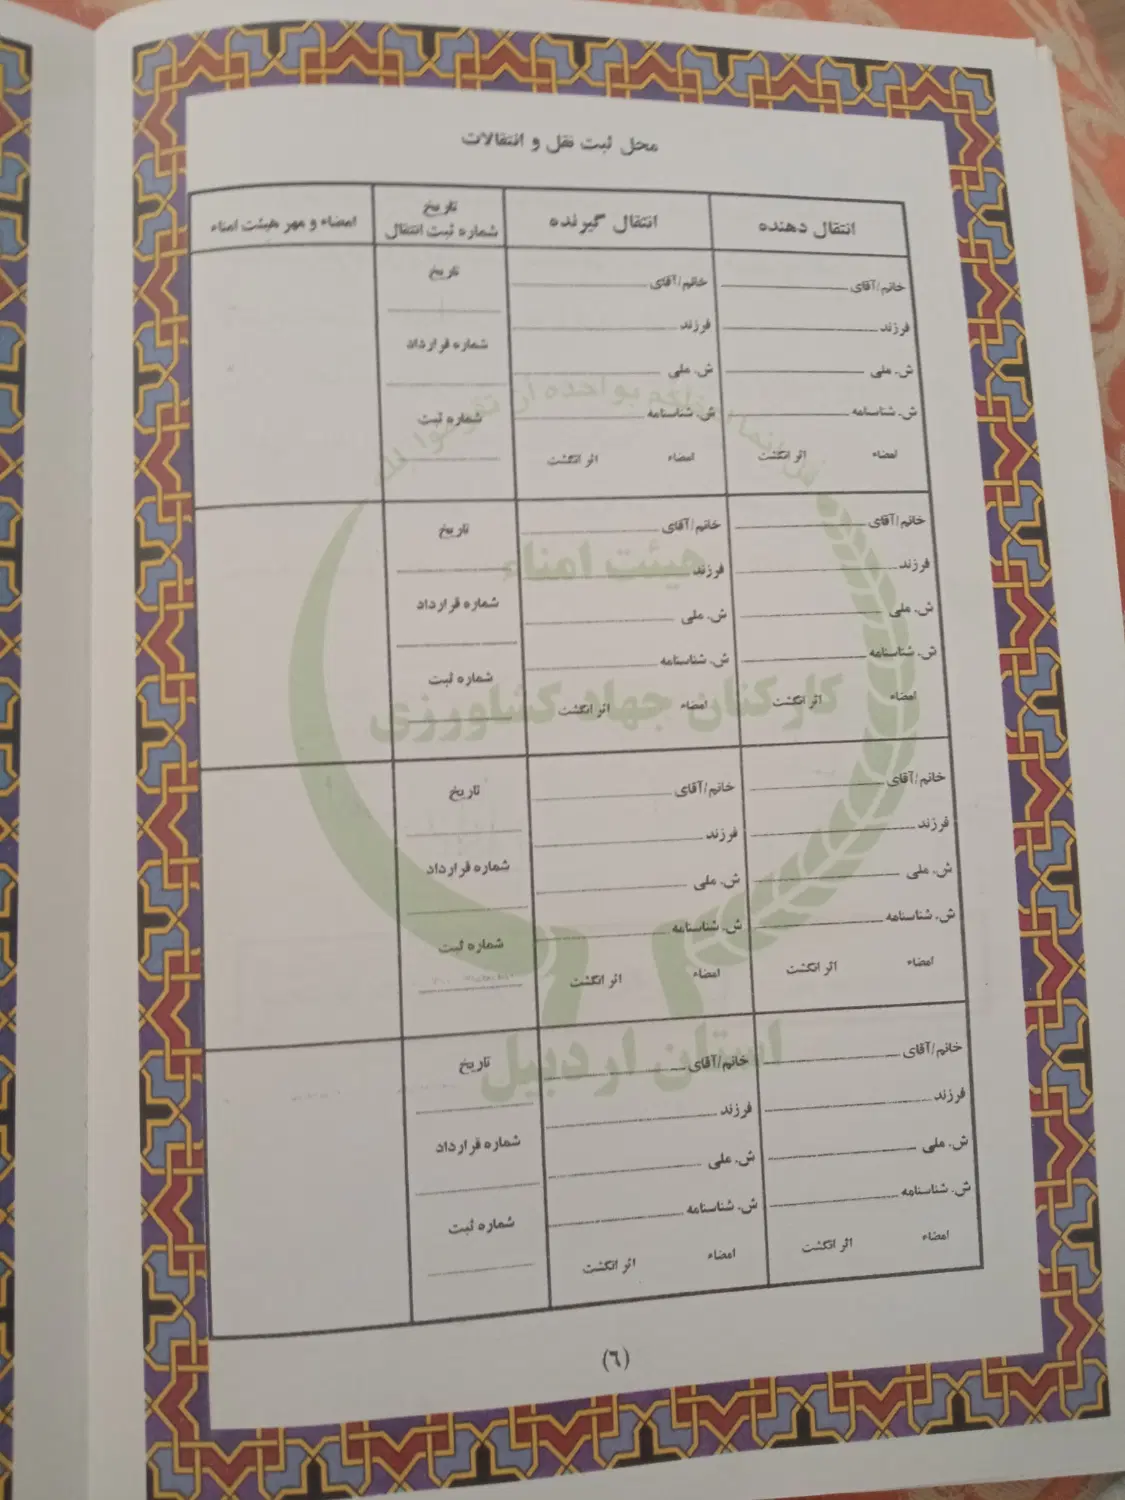 محل ثبت نقل و انتقالات
انتقال دهنده
انتقال گیرنده
تاریخ
شماره ثبت انتقال
امضاء و مهر هیئت امناء
خانم/آقای
فرزند
ش. ملی
ش. شناسنامه
امضاء اثر انگشت
خانم/آقای
فرزند
ش. ملی
ش. شناسنامه
امضاء اثر انگشت
تاریخ
شماره قرارداد
شماره ثبت
خانم/آقای
فرزند
ش. ملی
ش. شناسنامه
امضاء اثر انگشت
خانم/آقای
فرزند
ش. ملی
ش. شناسنامه
امضاء اثر انگشت
تاریخ
شماره قرارداد
شماره ثبت
خانم/آقای
فرزند
ش. ملی
ش. شناسنامه
امضاء اثر انگشت
خانم/آقای
فرزند
ش. ملی
ش. شناسنامه
امضاء اثر انگشت
تاریخ
شماره قرارداد
شماره ثبت
خانم/آقای
فرزند
ش. ملی
ش. شناسنامه
امضاء اثر انگشت
خانم/آقای
فرزند
ش. ملی
ش. شناسنامه
امضاء اثر انگشت
تاریخ
شماره قرارداد
شماره ثبت
هیئت امناء
کارکنان جهاد کشاورزی
استان اردبیل
(٦)